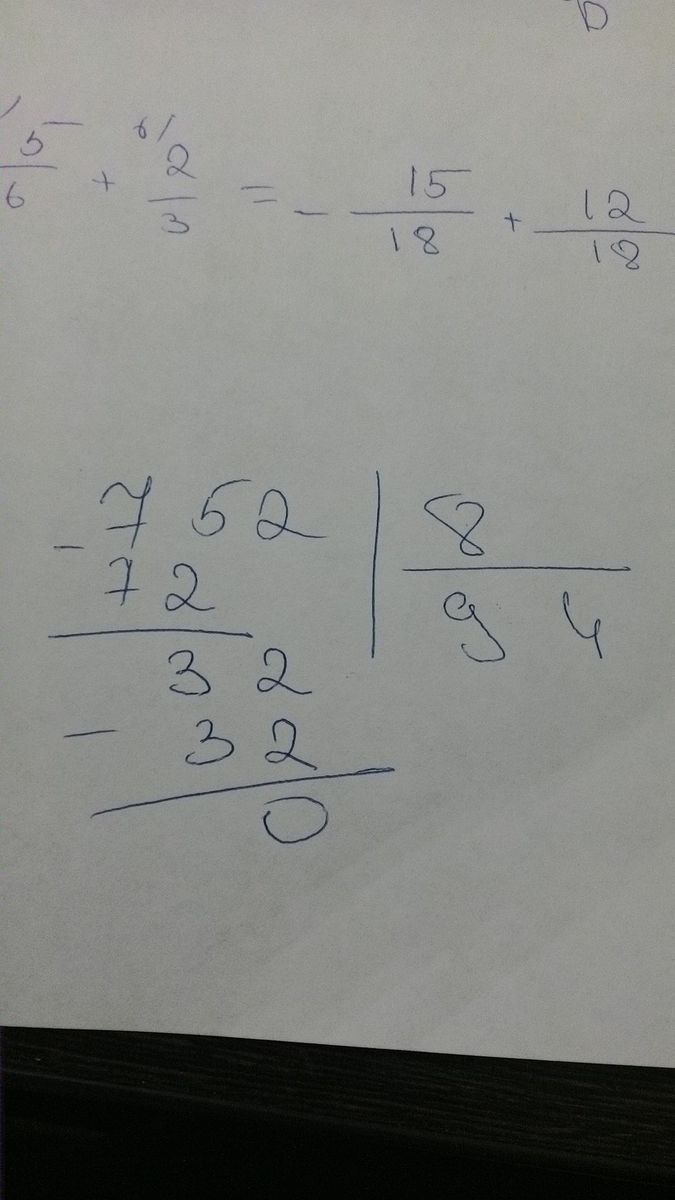 5/6 + 6/ 2/3 = - 15/18 + 12/18
- 752 | 8
72 | 94
32
- 32
0